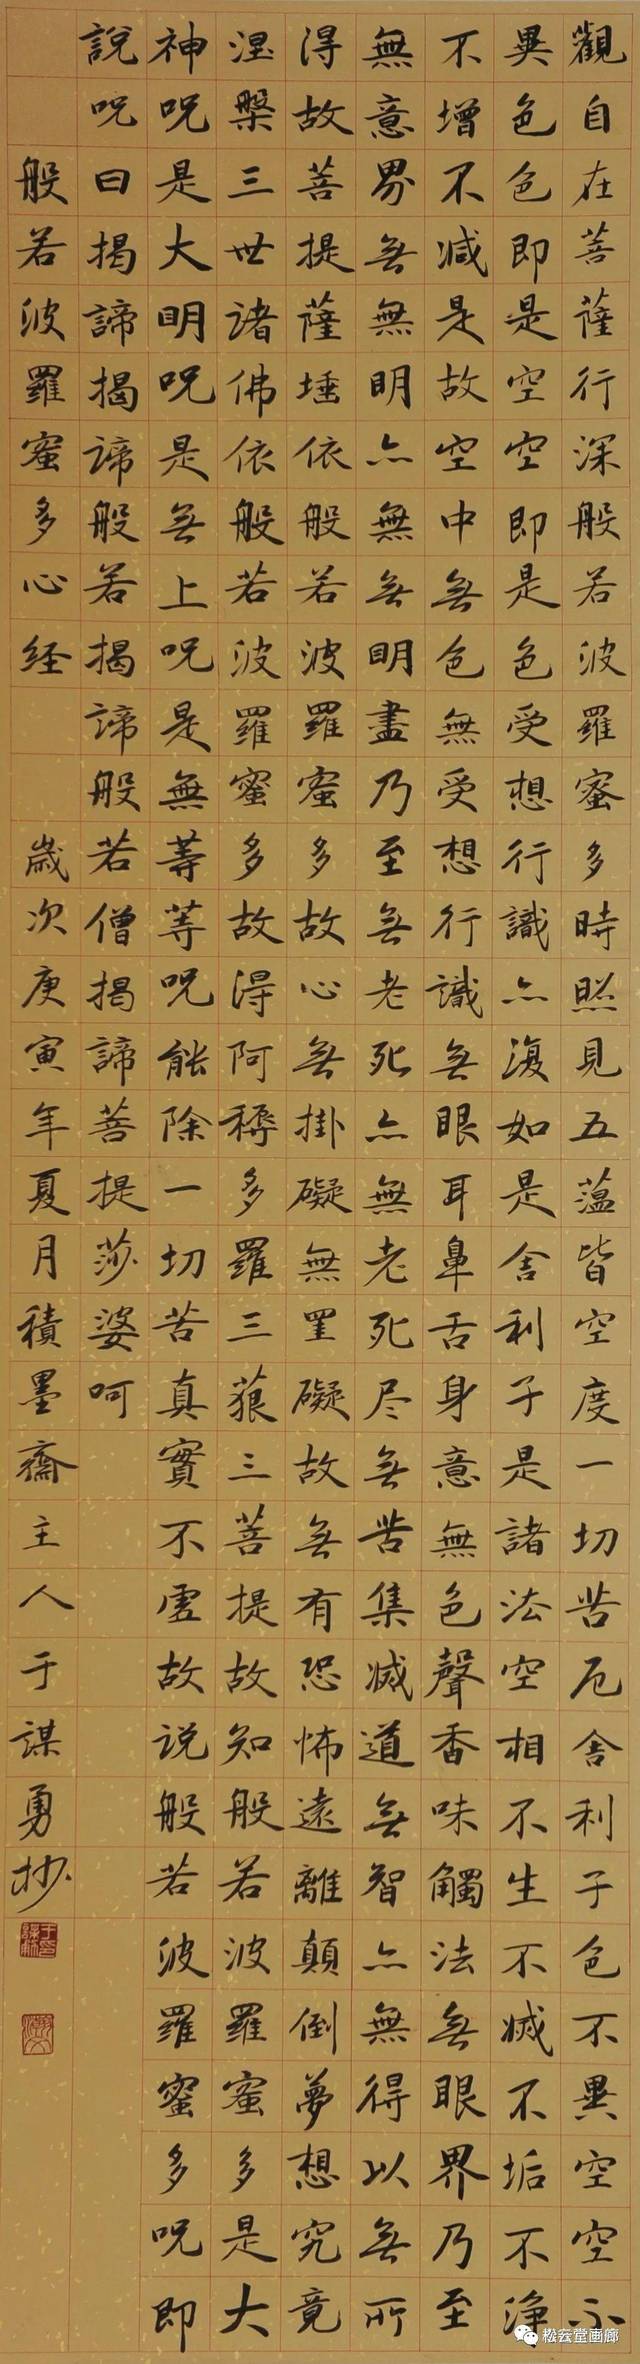 觀自在菩薩行深般若波羅蜜多時照見五蕰皆空度一切苦厄舍利子色不異空空不
異色色即是空空即是色受想行識亦復如是舍利子是諸法空相不生不滅不垢不淨
不增不減是故空中無色無受想行識無眼耳鼻舌身意無色聲香味觸法無眼界乃至
無意界無無明亦無無明盡乃至無老死亦無老死尽無苦集滅道無智亦無得以無所
得故菩提薩埵依般若波羅蜜多故心無掛礙無罣礙故無有恐怖遠離顛倒夢想究竟
涅槃三世诸佛依般若波羅蜜多故得阿耨多羅三藐三菩提故知般若波羅蜜多是大
神呪是大明呪是無上呪是無等等呪能除一切苦真實不虛故说般若波羅蜜多呪即
說呪曰揭諦揭谛般若揭諦般若僧揭諦菩提莎婆呵
般若波羅蜜多心经 歲次庚寅年夏月積墨齋主人于謀勇抄
松云堂画廊